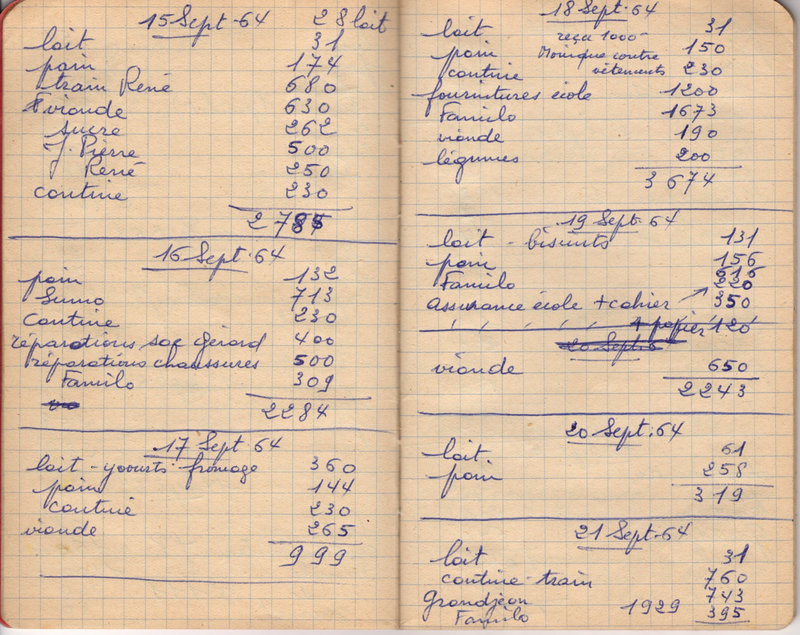 15 Sept. 64 28 lait
lait 31
pain 174
train René 680
viande 630
sucre 262
J. Pierre 500
René 250
cantine 230
2785
16 Sept. 64
pain 132
Sumo 713
Cantine 230
réparations sac Gérard 400
réparations chaussures 500
Familo 309
2284
17 Sept. 64
lait - yaourts fromage 360
pain 144
cantine 230
viande 265
999
18 Sept. 64
lait reçu 1000- 31
pain Monique contre 150
cantine vêtements 230
fournitures école 1200
Familo 1673
viande 190
légumes 200
3674
19 Sept. 64
lait - biscuits 131
pain 156
Familo 616
220
assurance école + cahier 350
+ papier 120
20 Sept. 6
viande 650
2243
20 Sept. 64
lait 61
pain 258
319
21 Sept. 64
lait 31
cantine - train 760
Grandjean 743
Familo 1929 395